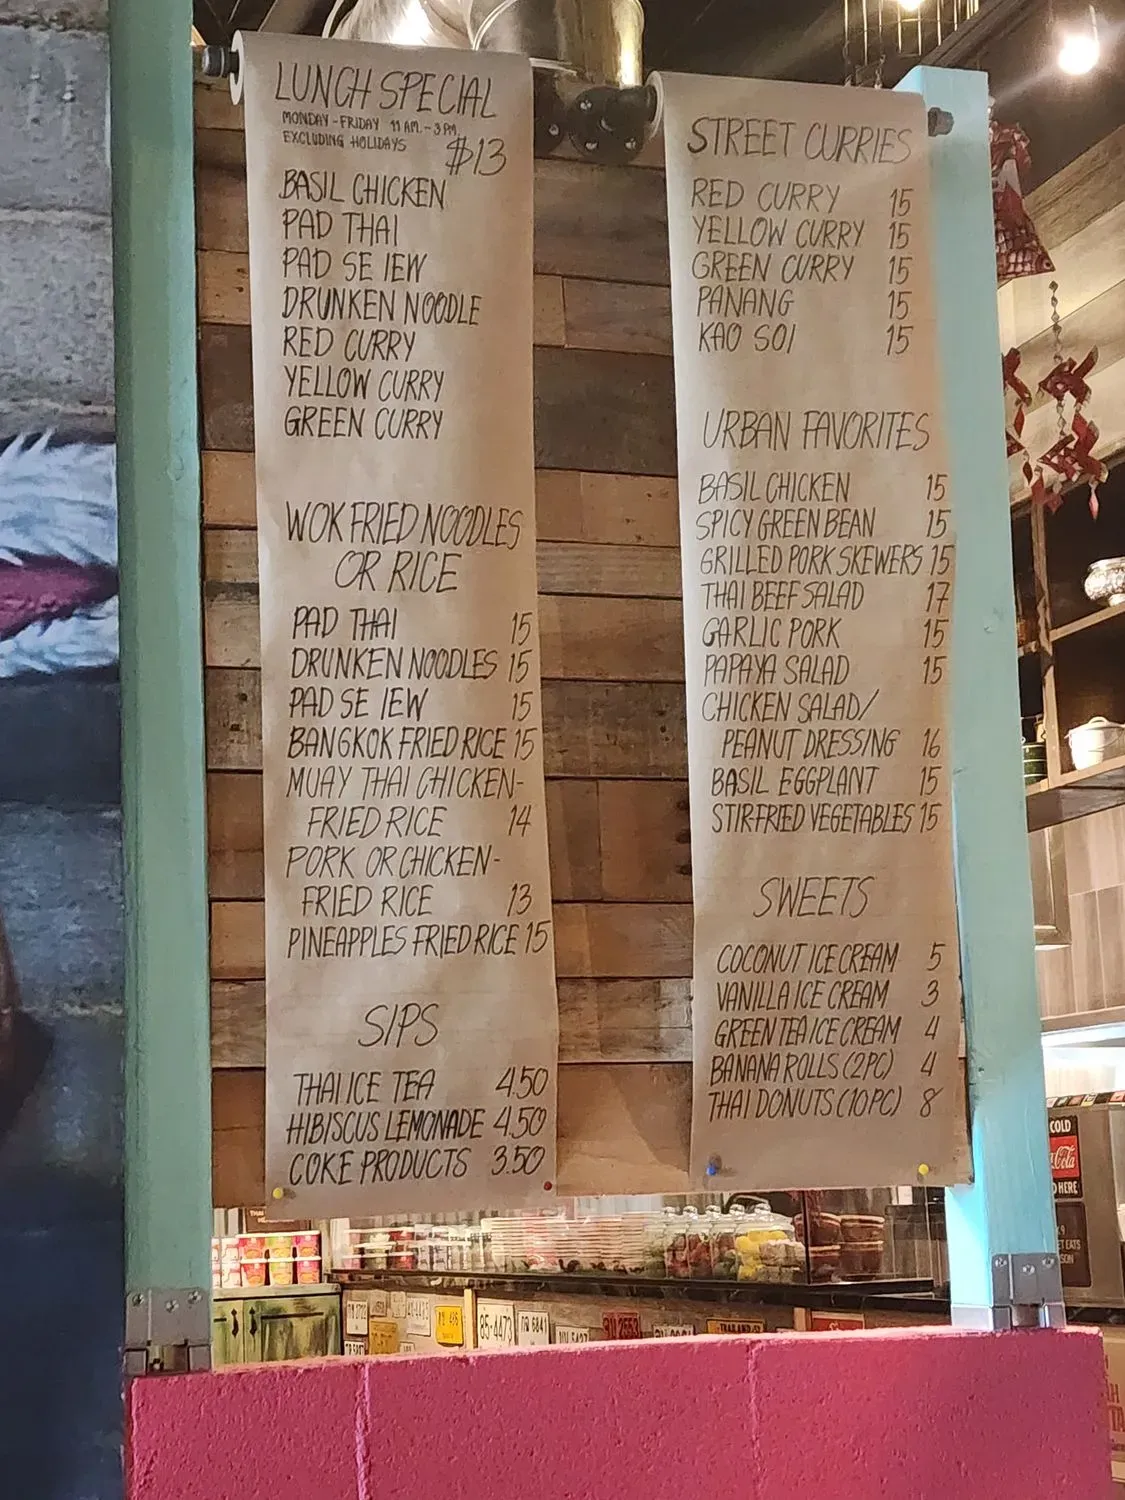 LUNCH SPECIAL
MONDAY - FRIDAY 11 AM. - 3 PM.
EXCLUDING HOLIDAYS
$13
BASIL CHICKEN
PAD THAI
PAD SE IEW
DRUNKEN NOODLE
RED CURRY
YELLOW CURRY
GREEN CURRY
WOK FRIED NOODLES
OR RICE
PAD THAI 15
DRUNKEN NOODLES 15
PAD SE IEW 15
BANGKOK FRIED RICE 15
MUAY THAI CHICKEN-
FRIED RICE 14
PORK OR CHICKEN-
FRIED RICE 13
PINEAPPLES FRIED RICE 15
SIPS
THAI ICE TEA 4.50
HIBISCUS LEMONADE 4.50
COKE PRODUCTS 3.50
STREET CURRIES
RED CURRY 15
YELLOW CURRY 15
GREEN CURRY 15
PANANG 15
KAO SOI 15
URBAN FAVORITES
BASIL CHICKEN 15
SPICY GREEN BEAN 15
GRILLED PORK SKEWERS 15
THAI BEEF SALAD 17
GARLIC PORK 15
PAPAYA SALAD 15
CHICKEN SALAD/
PEANUT DRESSING 16
BASIL EGGPLANT 15
STIRFRIED VEGETABLES 15
SWEETS
COCONUT ICE CREAM 5
VANILLA ICE CREAM 3
GREEN TEA ICE CREAM 4
BANANA ROLLS (2PC) 4
THAI DONUTS (10PC) 8
COLD
HERE
85-4473